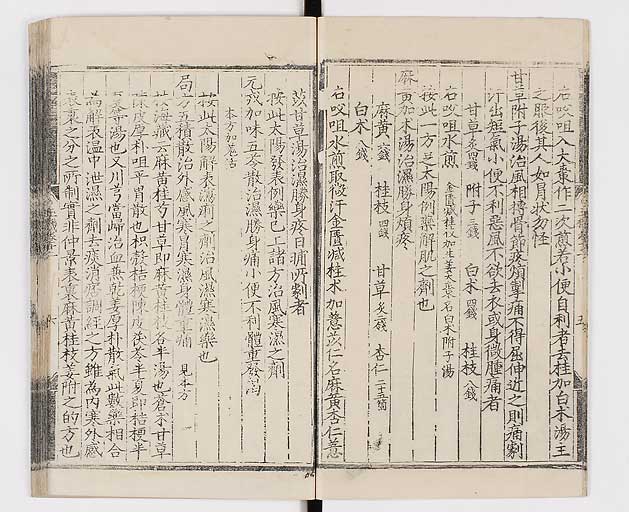 右㕮咀入大棗作二次煎若小便自利者去桂加白朮湯主
之服後其人如冒狀勿怪
甘草附子湯治風相搏骨節疼煩掣痛不得屈伸近之則痛劇
汗出短氣小便不利惡風不欲去衣或身微腫痛者
甘草 附子 白朮 桂枝
右㕮咀水煎
按此一方足太陽例藥解肌之劑也
麻黃加朮湯治濕勝身煩疼
麻黃 桂枝 甘草 杏仁
白朮
右㕮咀水煎取微汗金匱減桂朮加薏苡仁名麻黃杏仁薏
苡甘草湯治濕勝身疼日晡所劇者
按此太陽發表例藥已上諸方治風寒濕之劑
元戎加味五苓散治濕勝身痛小便不利體重發渴
本方加羌活
按此太陽解表滲利之劑治風濕寒濕藥也
局方五積散治外感風寒冒寒濕身體重痛 見本方
按海藏云麻黃桂芍甘草即麻黃桂枝各半湯也蒼朮甘草
陳皮厚朴咀平胃散也枳殼桔梗陳皮茯苓半夏即桔梗半
夏湯也又川芎當歸治血兼乾姜厚朴散氣此數藥相合
為解表溫中泄濕之劑去痰消痞調經之方雖為內寒外感
表裏之分之所制實非仲景表裏麻黃桂枝姜附之的方也